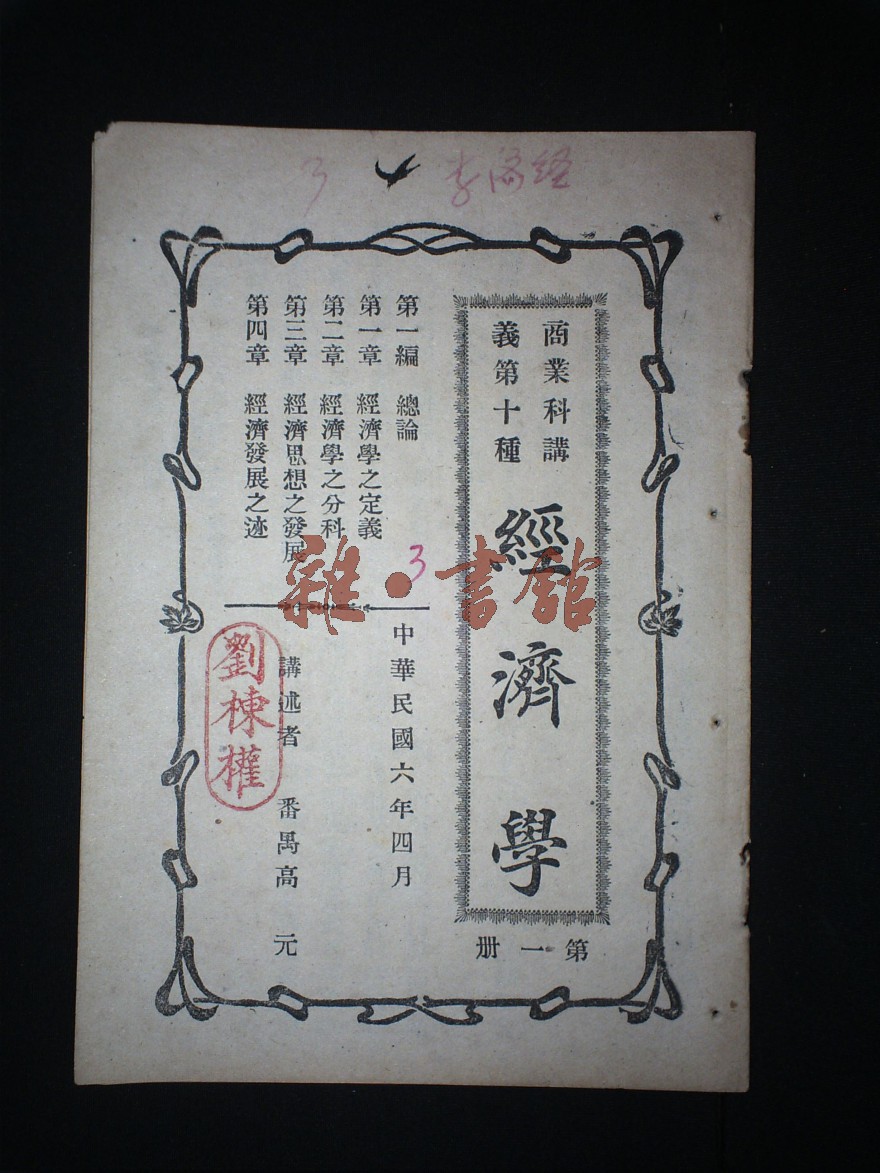 經濟李 3
商業科講
義第十種
經濟學
第一册
第一編 總論
第一章 經濟學之定義
第二章 經濟學之分科
第三章 經濟思想之發展
第四章 經濟發展之迹
3
中華民國六年四月
講述者 番禺高 元
劉棟權
雜·書館